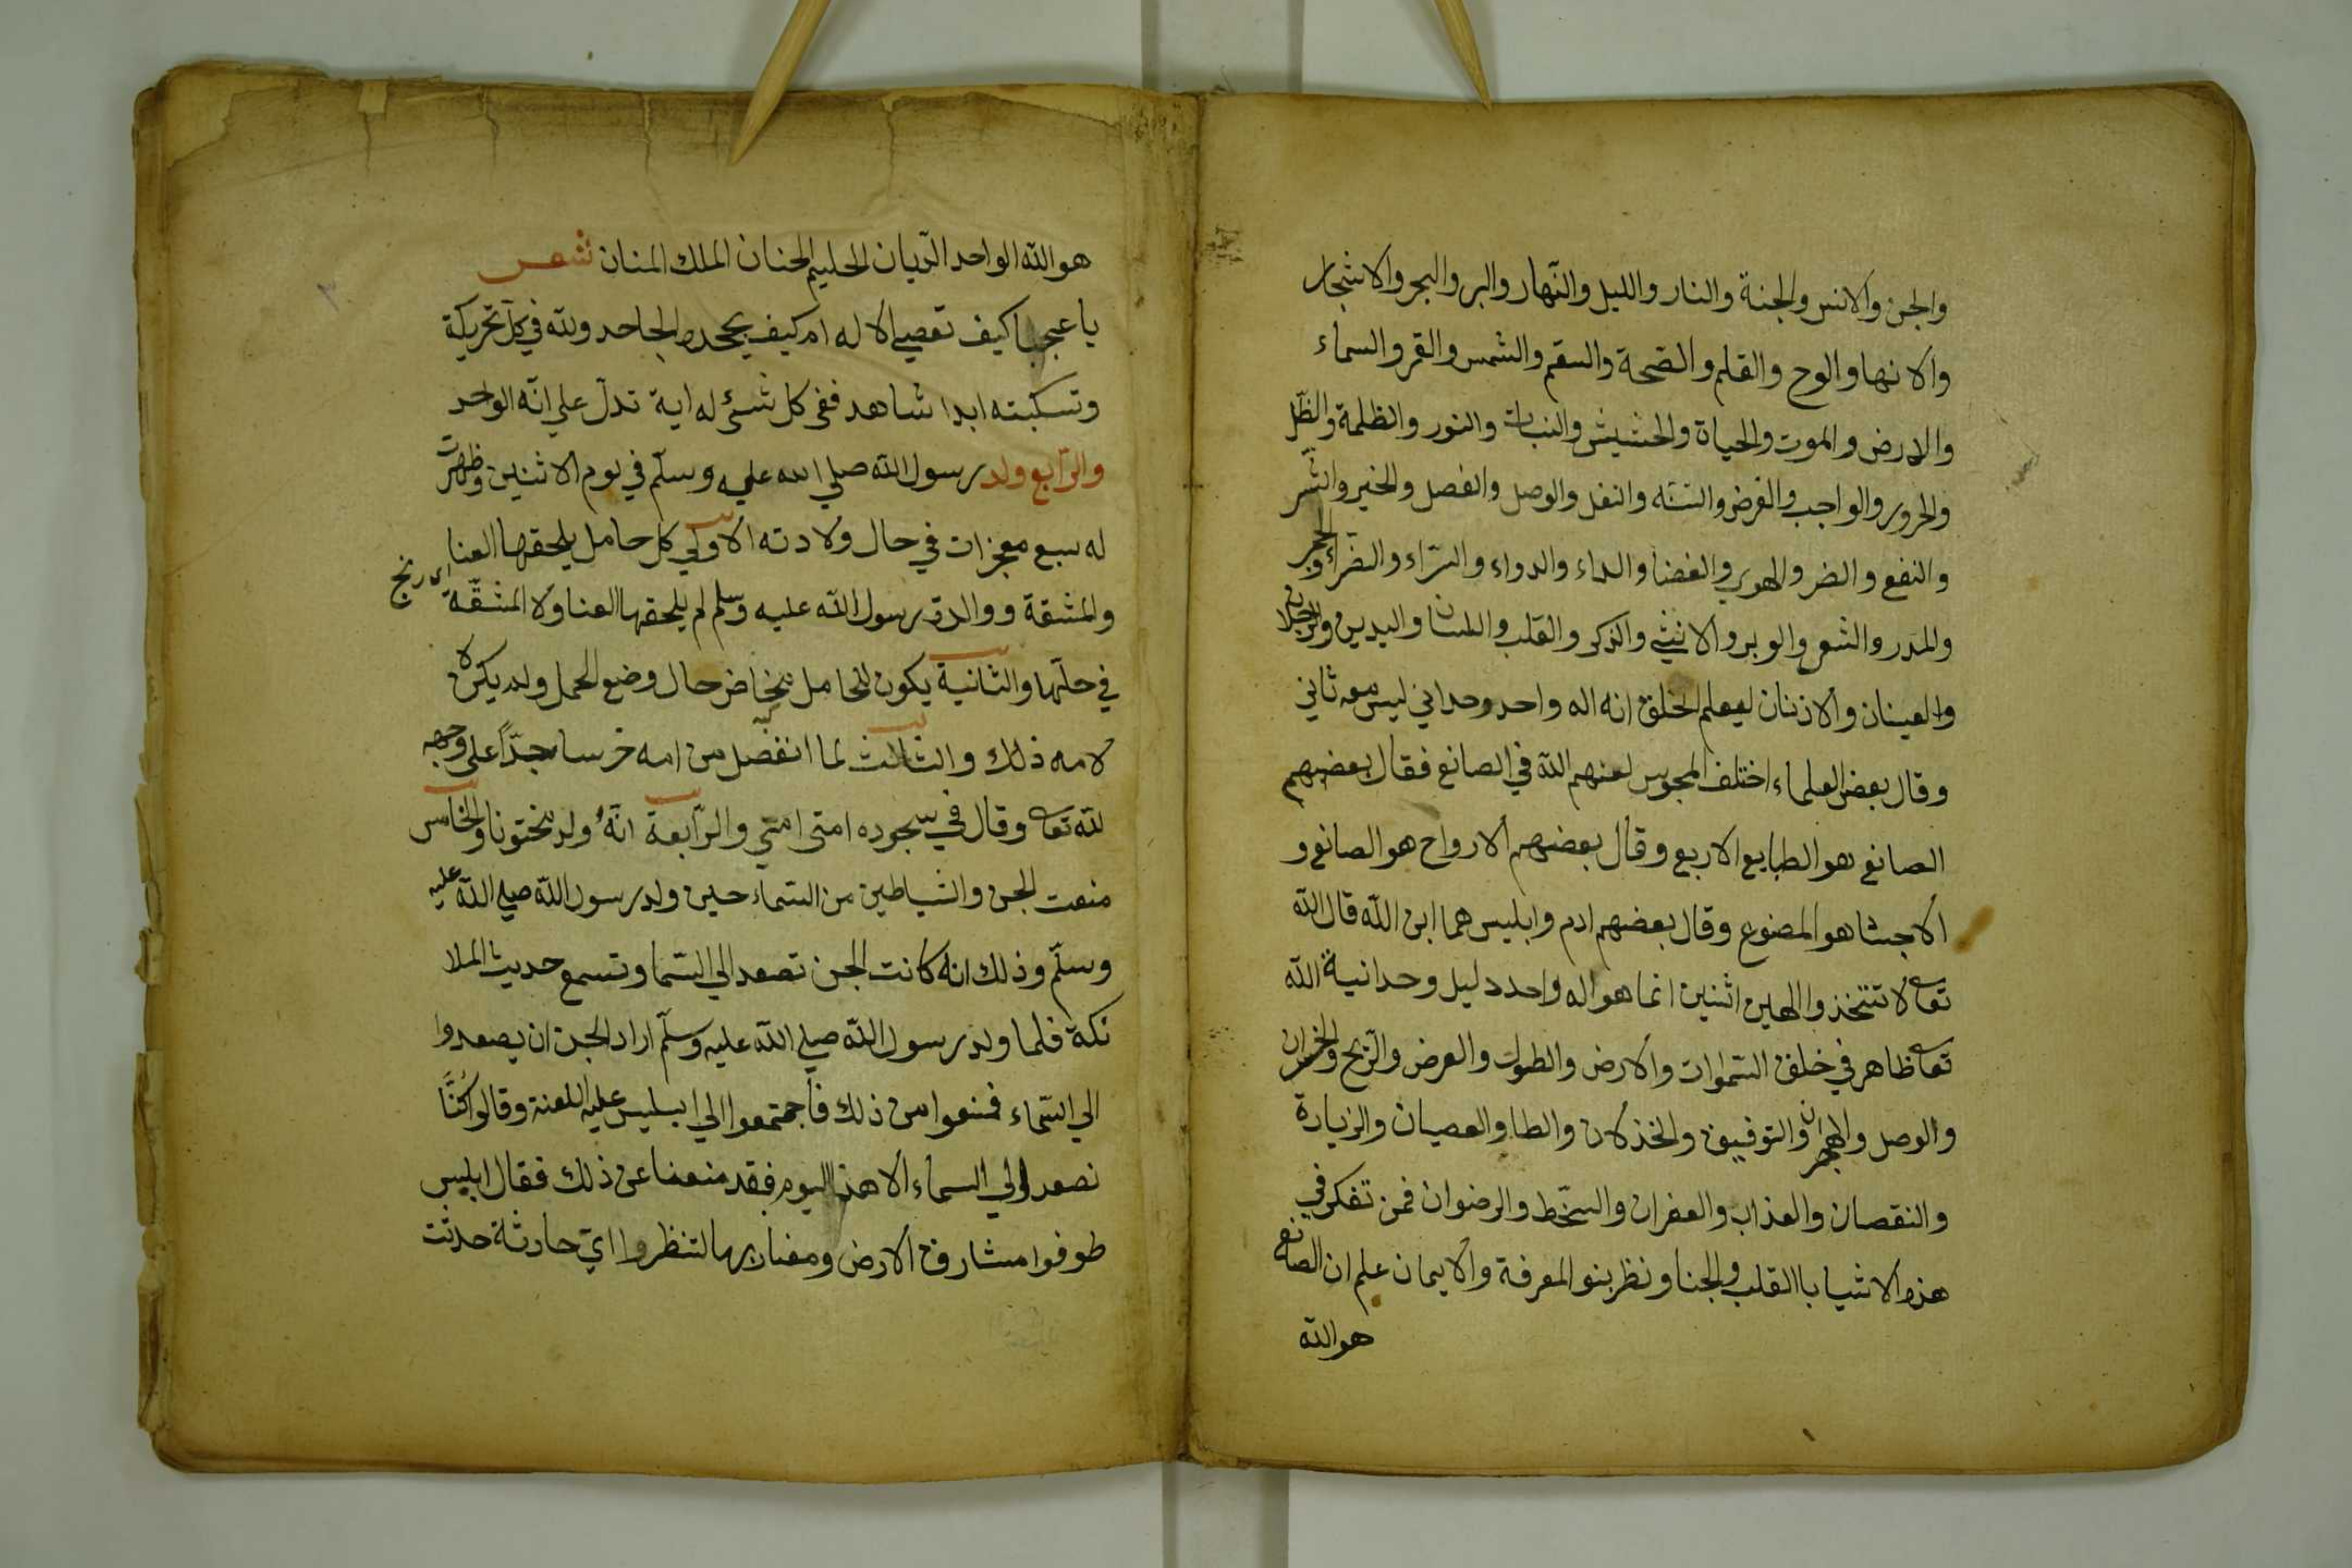 والجن والانس والجنة والنار والليل والنّهار والبر والبحر والاشجار
والانها والوح والقلم والصّحة والسقم والشمس والقمر والسماء
والارض والموت والحياة والحشيش والنبات والنور والظلمة والظّل
والحرور والواجب والفرض والسنّه والنفل والوصل والفصل والخير والشّر
والنفع والضر والهوي والفضا والداء والدواء والسّراء والضرّاء والحجر
والمدر والشعر والوبر والانثي والذكر والقلب واللسان واليدين والرجلان
والعينان والاذنان ليعلم الخلق انه اله واحد وحداني ليس معه ثاني
وقال بعض العلماء اختلف المجوس لعنهم الله في الصانع فقال بعضهم
الصانع هو الطبايع الاربع وقال بعضهم الارواح هو الصانع و
الاجسا هو المصنوع وقال بعضهم ادم وابليس هما ابن الله قال الله
تعا لا تتخذوا الهين اثنين انما هو اله واحد دليل وحدانية الله
تعا ظاهر في خلق السّموات والارض والطول والعرض والرّبح والخسران
والوصل والهجران والتوفيق والخذلان والطا والعصيان والزيادة
والنقصان والعذاب والغفران والسّخط والرضوان فمن تفكر في
هذه الاشيا باالقلب والجنا ونظر بنو المعرفة والايمان علم ان الصانع
هو الله
هو الله الواحد الدّيان الحليم الحنان الملك المنان شعر
يا عجبا كيف تعصي الاله ام كيف يجحده الجاحد ولله في كل تحريكة
وتسكينته ابدا شاهد ففي كل شئ له اية تدلّ علي انّه الواحد
والرّابع ولد رسول الله صلي الله عليه وسلّم في يوم الاثنين وظهرت
له سبع معجزات في حال ولادته الاولي كل حامل يلحقها العنا
والمشقة ووالدة رسول الله عليه وسلم لم يلحقها العنا ولا المشقّة اي رنج
في حلّها والثانية يكون للحامل مخاض حال وضع الحمل ولم يكن لا
لامه ذلك والثالث لما انفصل من امه خر ساجدّاً علي وجهه
لله تعا وقال في سجوده امتى امتي والرّابعة انّه ولد مختونا والخامس
منعت الجن والشياطين من السّماء حين ولد رسول الله صلي الله عليه
وسلّم وذلك انه كانت الجن تصعد الي السّما وتسمع حديث الملا
ئكة فلما ولد رسول الله صلي الله عليه وسلّم اراد الجن ان يصعدوا
الي السّماء فمنعوا من ذلك فاجمتمعوا الي ابليس عليه اللعنة وقالوا كُنَّا
نصعد الي السماء الا هذا اليوم فقد منعنا عن ذلك فقال ابليس
طوفوا مشارق الارض ومغاربها لتنظروا ايّ حادثة حدثت